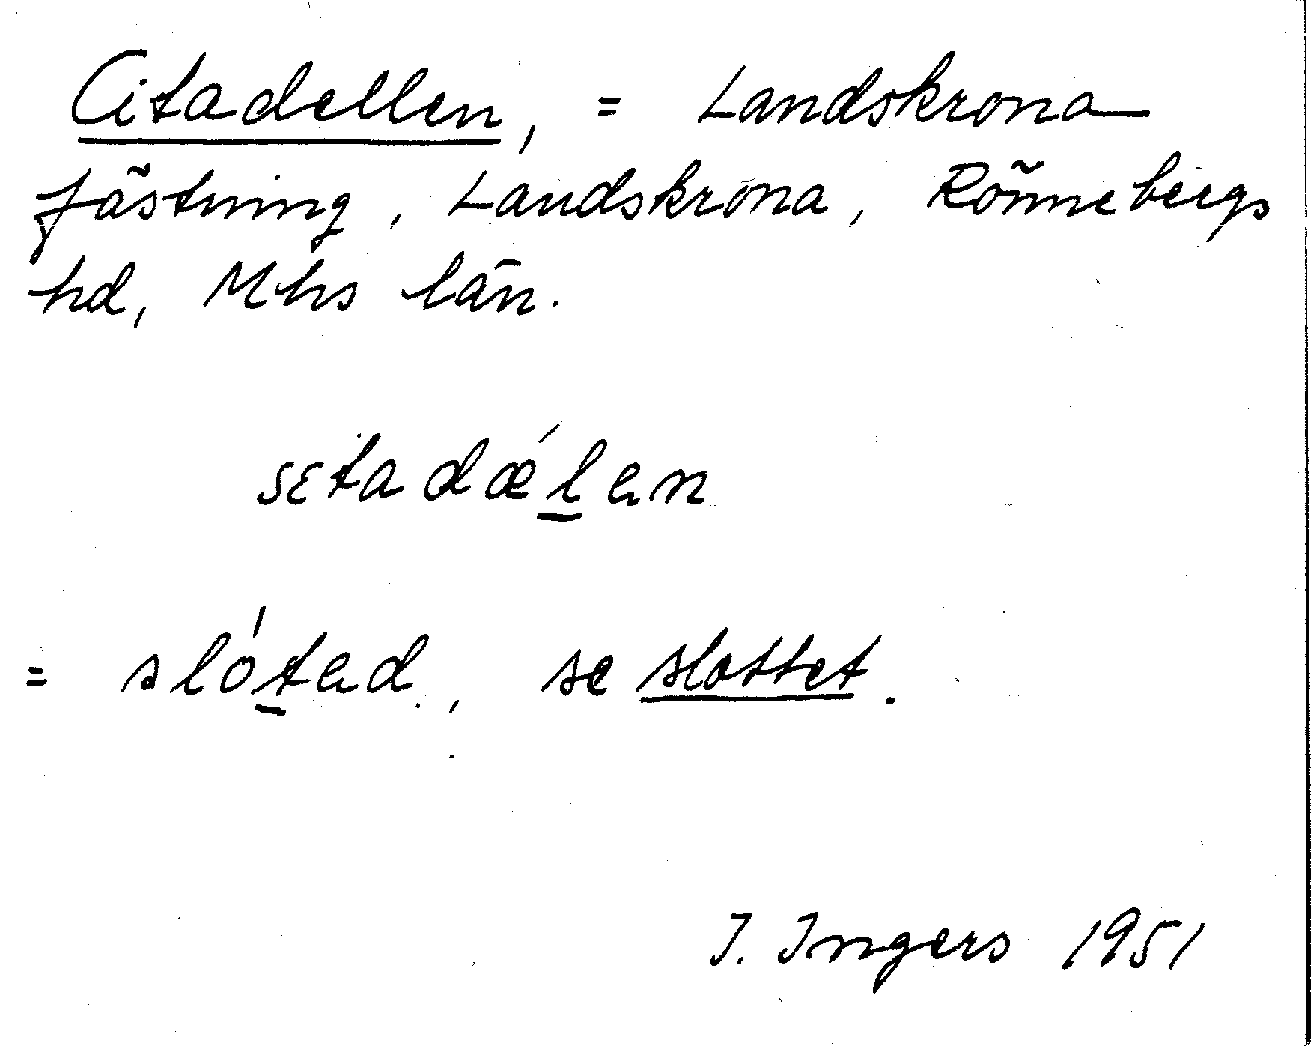 Citadellen, = Landskrona
fästning, Landskrona, Rönnebergs
hd, Mhs län.
sɛtadǽlen
= slóted, se slottet.
I. Ingers 1951